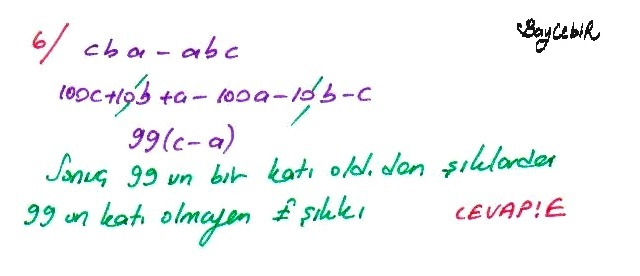 BayCebiR
6/ cba - abc
100c+10b+a-100a-10b-c
99(c-a)
Sonuç 99 un bir katı old.dan şıklardan
99 un katı olmayan E şıkkı CEVAP:E